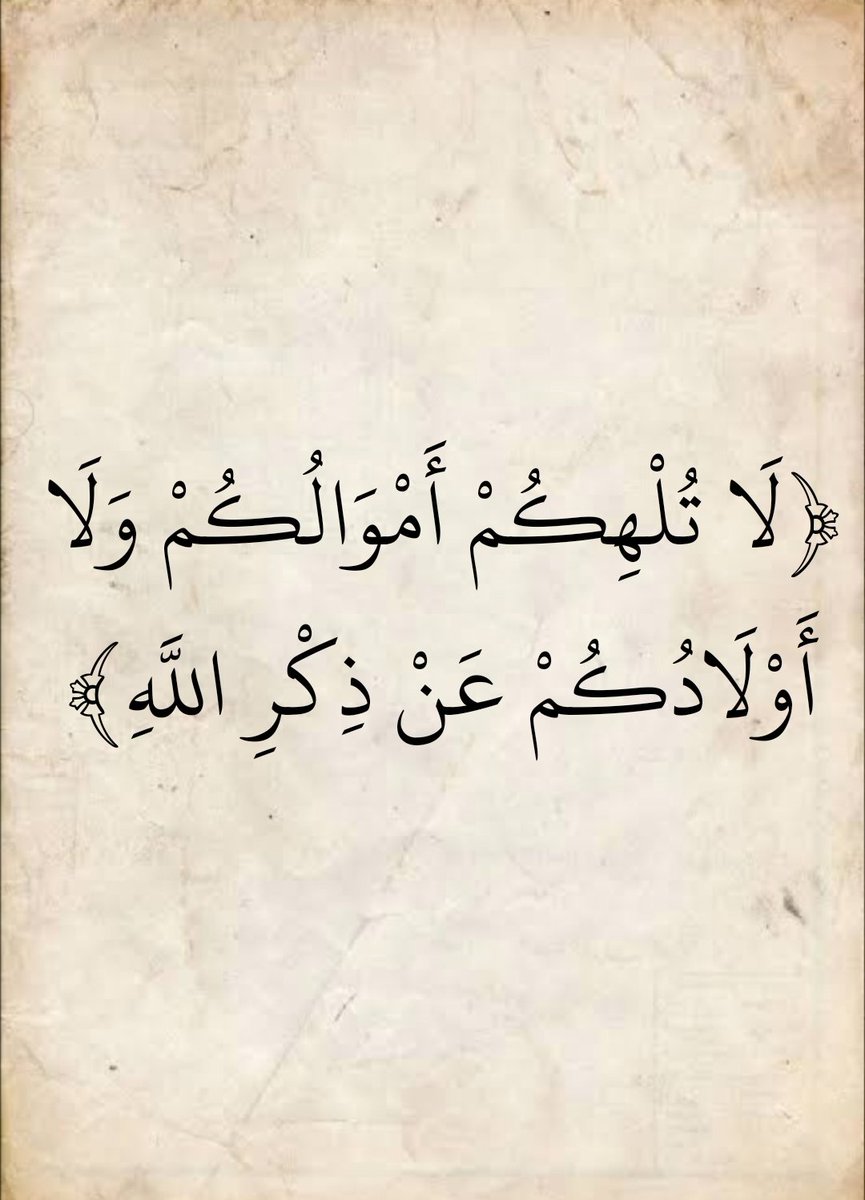 ﴿لَا تُلْهِكُمْ أَمْوَالُكُمْ وَلَا
أَوْلَادُكُمْ عَنْ ذِكْرِ اللَّهِ﴾